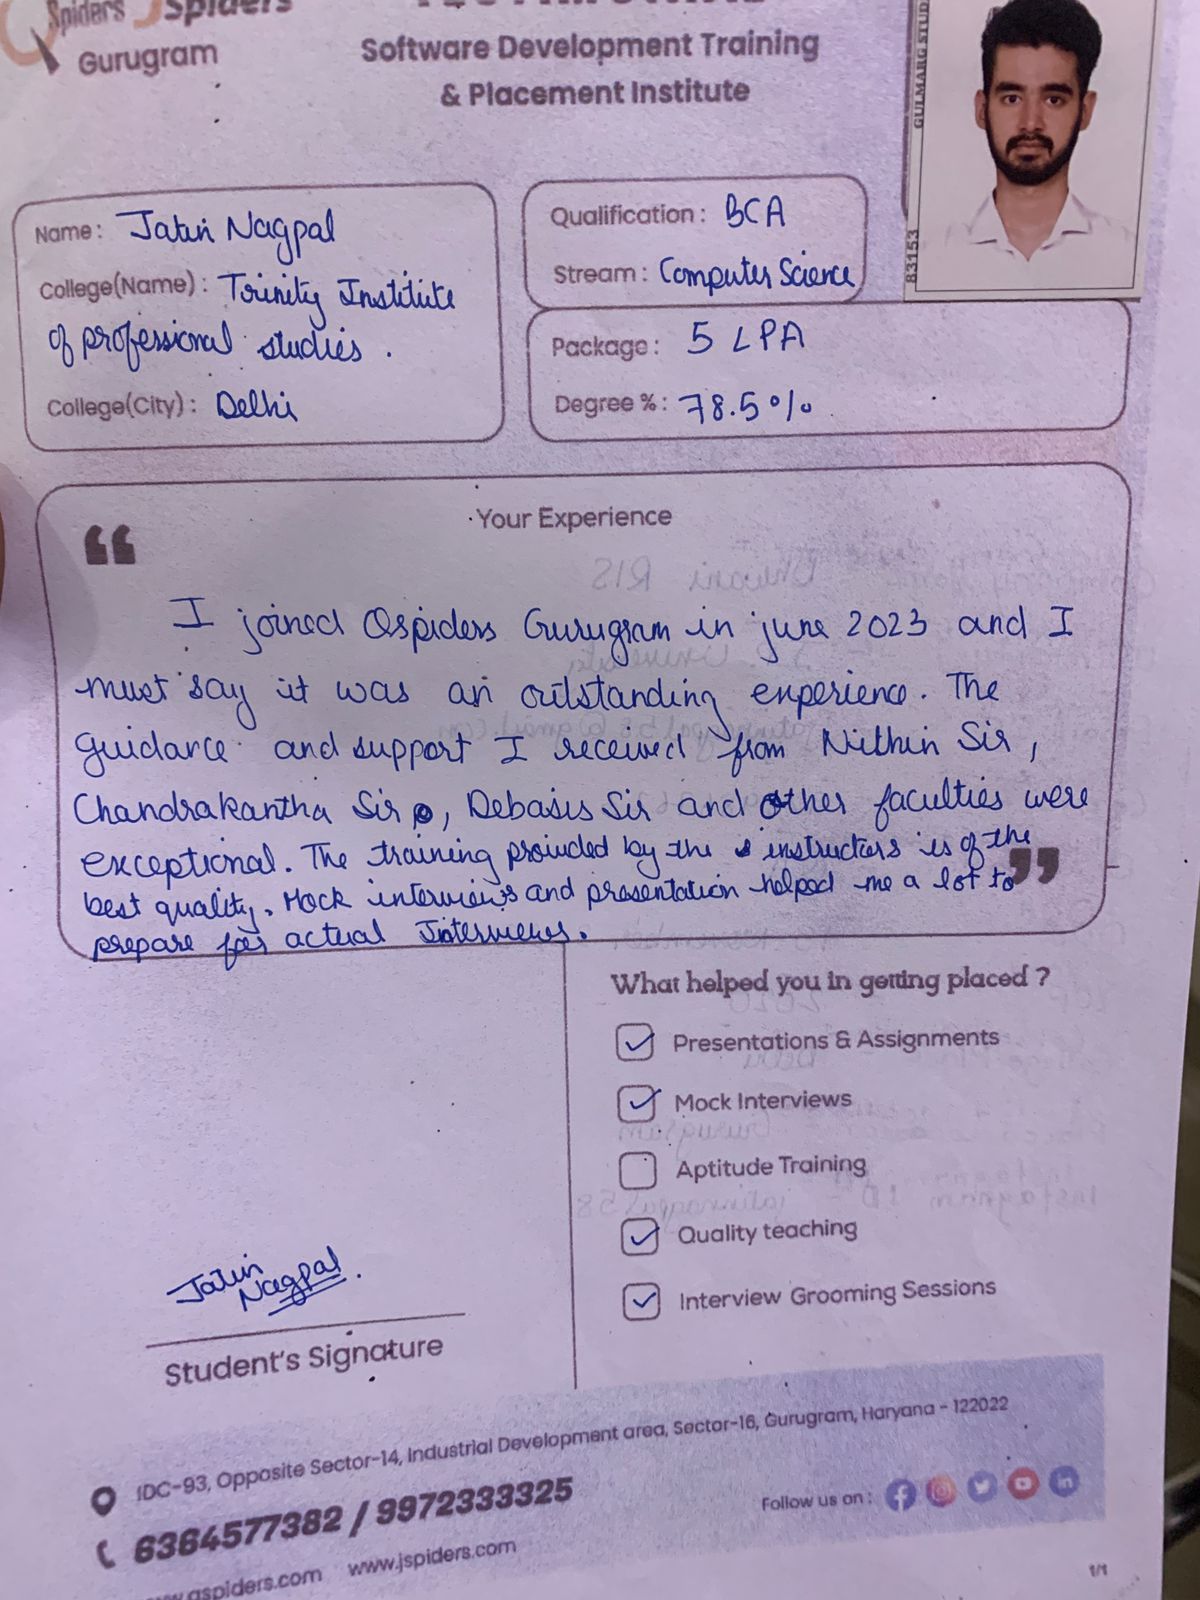 Spiders JSpiders
Gurugram
Software Development Training
& Placement Institute
GULMARG STUD
83153
Name: Jatin Nagpal
College(Name): Trinity Institute
of professional studies.
College(City): Delhi
Qualification: BCA
Stream: Computer Science
Package: 5 LPA
Degree %: 78.5%
Your Experience
I joined Qspiders Gurugram in june 2023 and I
must say it was an outstanding experience. The
guidance and support I received from Nithin Sir,
Chandrakantha Sir, Debasis Sir and other faculties were
exceptional. The training provided by the instructors is of the
best quality. Mock interviews and presentation helped me a lot to
prepare for actual Interviews.
What helped you in getting placed ?
Presentations & Assignments
Mock Interviews
Aptitude Training
Quality teaching
Interview Grooming Sessions
Jatin
Nagpal.
Student's Signature
IDC-93, Opposite Sector-14, Industrial Development area, Sector-16, Gurugram, Haryana - 122022
6364577382 / 9972333325
Follow us on :
www.qspiders.com www.jspiders.com
1/1